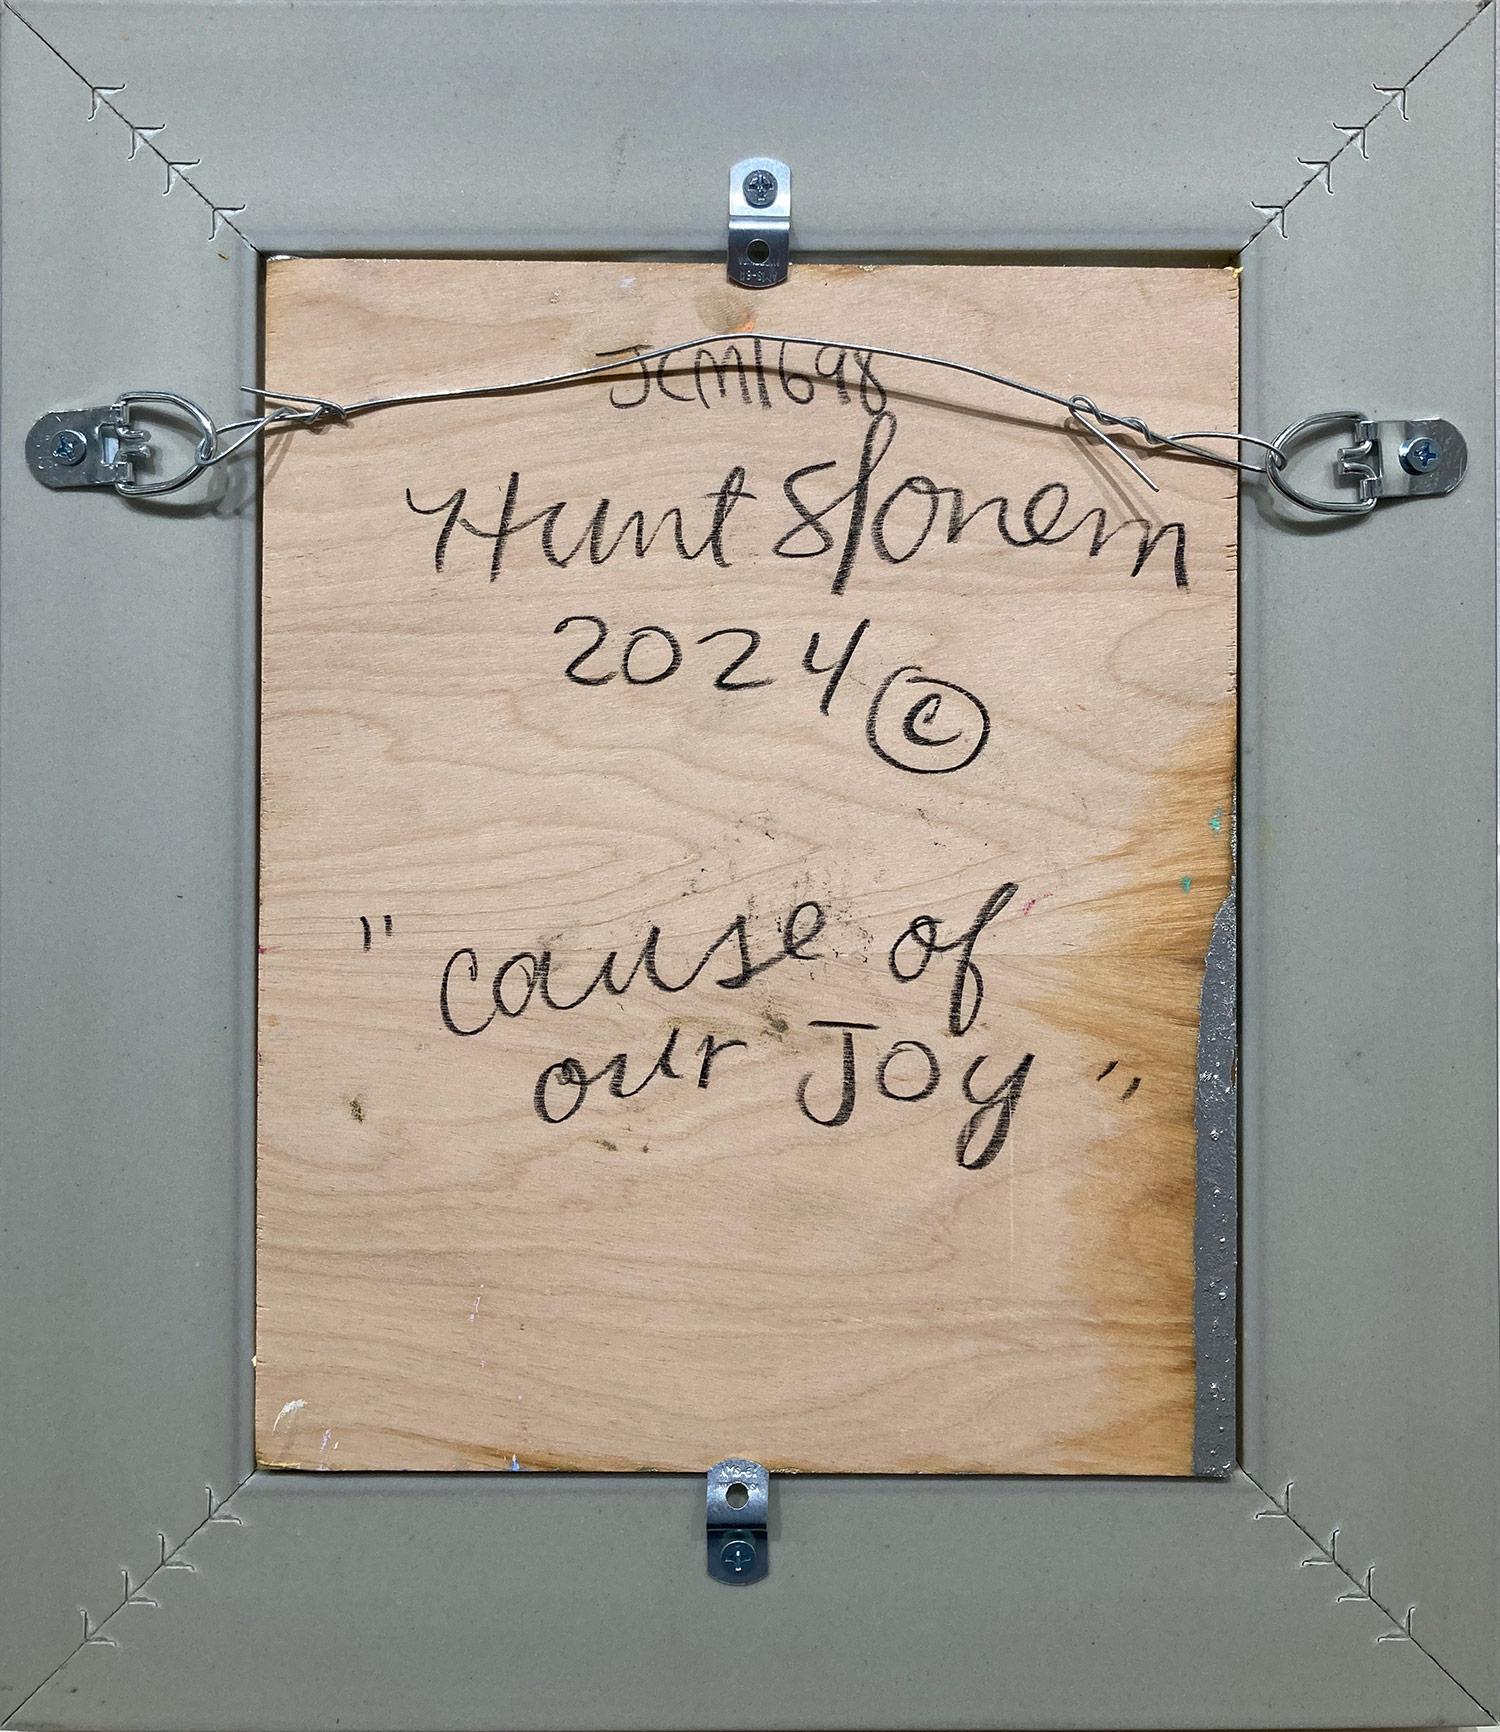 JCM1698
Hunt Slonem
2024 ©
"cause of
our Joy"